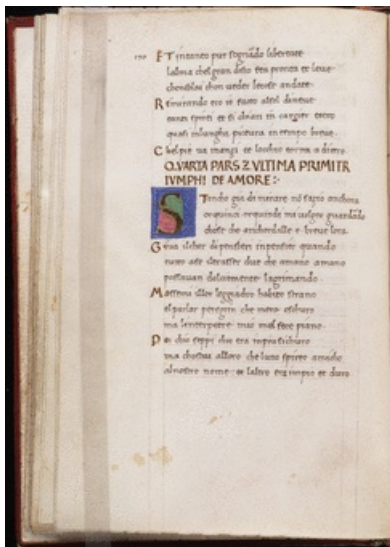 ET intanto pur sognãdo libertate
lalma chel gran disio fea pronta et leue
chonsolai chon ueder lecose andate.
Rimirando ero io facto alsol dineue
tanti spirti et si chiari in carcier tetro
quasi inlungha pictura in tempo breue.
Chelpie ua inanzi et locchio torna adietro
QVARTA PARS Z VLTIMA PRIMI TR
IVMPHI DE AMORE :-
STancho gia di mirare nõ satio anchora
orquinci orquindi mi volgea guardãdo
chose che arichordalle e breue lora.
Giua ilchor dipensier inpensier quando
tucto ase iltrasser due che amano amano
passauan dolcemente lagrimando
Mossemi illor leggiadro habito strano
elparlar peregrin che mera oschuro
ma linterprete mio mel fece piano.
Poi chio seppi chi era sichuro
ma chostai alloro che luno spirito amicho
alnostro nome et laltro era impio et duro